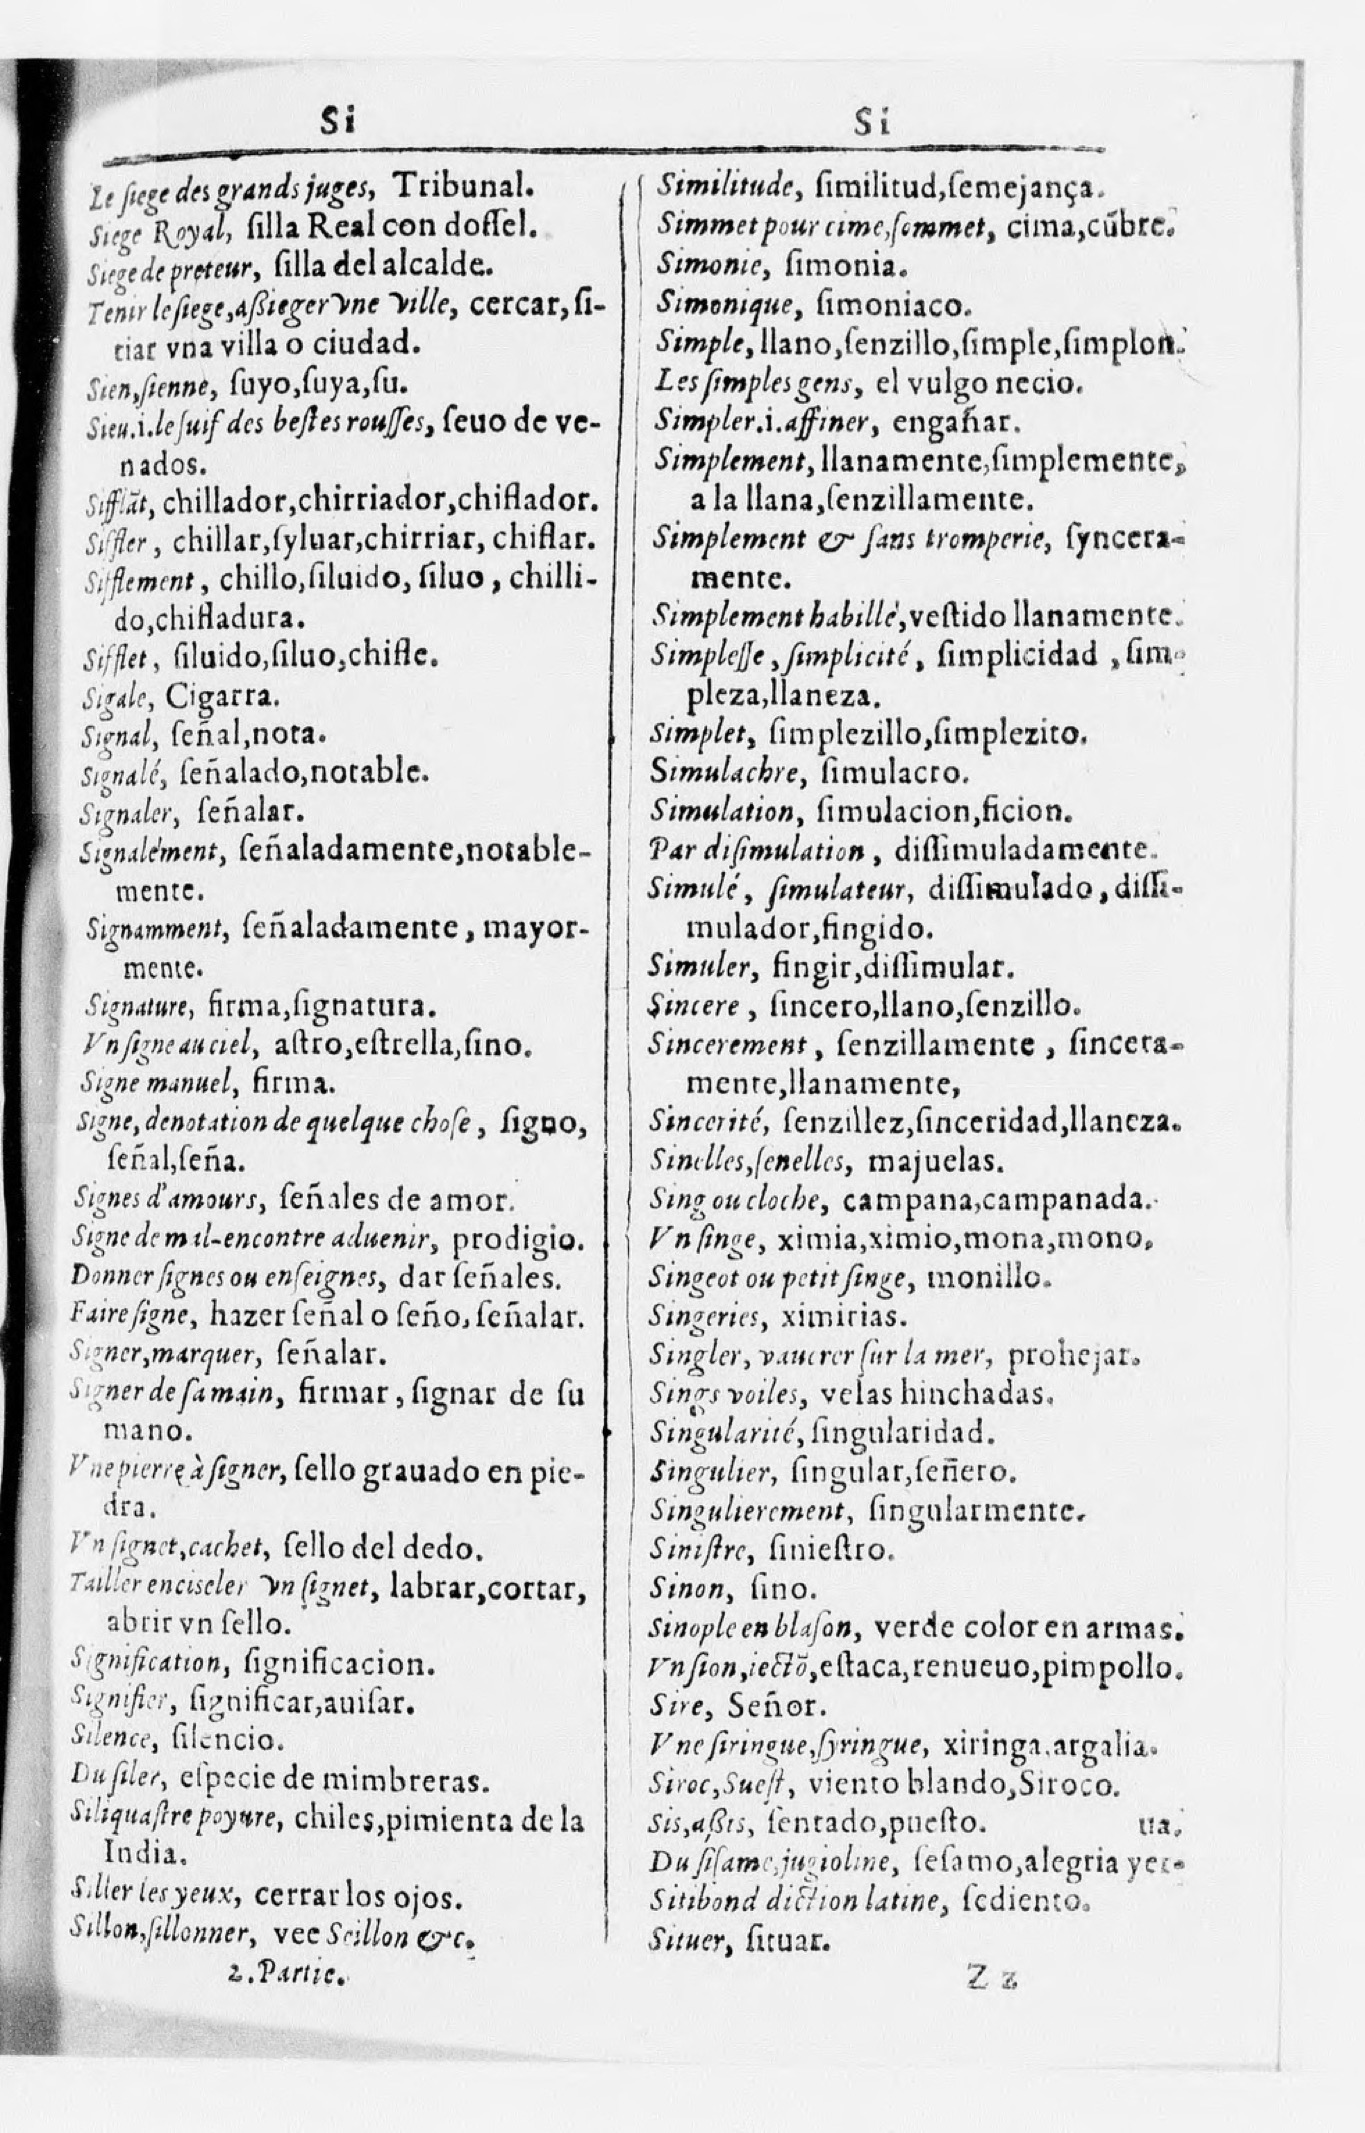 Si
Le ſiege des grands juges, Tribunal.
Siege Royal, ſilla Real con doſſel.
Siege de preteur, ſilla del alcalde.
Tenir le ſiege, aßieger vne ville, cercar, ſi-
tiar vna villa o ciudad.
Sien, ſienne, ſuyo, ſuya, ſu.
Sieu.i. le ſuif des beſtes rouſſes, ſeuo de ve-
nados.
Sifflãt, chillador, chirriador, chiflador.
Siffler, chillar, ſyluar, chirriar, chiflar.
Sifflement, chillo, ſiluido, ſiluo, chilli-
do, chifladura.
Sifflet, ſiluido, ſiluo, chifle.
Sigale, Cigarra.
Signal, ſeñal, nota.
Signalé, ſeñalado, notable.
Signaler, ſeñalar.
Signalément, ſeñaladamente, notable-
mente.
Signamment, ſeñaladamente, mayor-
mente.
Signature, firma, ſignatura.
Vn ſigne au ciel, aſtro, eſtrella, ſino.
Signe manuel, firma.
Signe, denotation de quelque choſe, ſigno,
ſeñal, ſeña.
Signes d'amours, ſeñales de amor.
Signe de mal-encontre aduenir, prodigio.
Donner ſignes ou enſeignes, dar ſeñales.
Faire ſigne, hazer ſeñal o ſeño, ſeñalar.
Signer, marquer, ſeñalar.
Signer de ſa main, firmar, ſignar de ſu
mano.
Vne pierre à ſigner, ſello grauado en pie-
dra.
Vn ſignet, cachet, ſello del dedo.
Tailler enciseler vn ſignet, labrar, cortar,
abrir vn ſello.
Signification, ſignificacion.
Signifier, ſignificar, auiſar.
Silence, ſilencio.
Du ſiler, eſpecie de mimbreras.
Siliquaſtre poyure, chiles, pimienta de la
India.
Siller les yeux, cerrar los ojos.
Sillon, ſillonner, vee Seillon &c.
2. Partie.
Si
Similitude, ſimilitud, ſemejança.
Simmet pour cime, ſommet, cima, cũbre.
Simonie, ſimonia.
Simonique, ſimoniaco.
Simple, llano, ſenzillo, ſimple, ſimplon.
Les ſimples gens, el vulgo necio.
Simpler.i. affiner, engañar.
Simplement, llanamente, ſimplemente,
a la llana, ſenzillamente.
Simplement & ſans tromperie, ſyncera-
mente.
Simplement habillé, veſtido llanamente.
Simpleſſe, ſimplicité, ſimplicidad, ſim-
pleza, llaneza.
Simplet, ſimplezillo, ſimplezito.
Simulachre, ſimulacro.
Simulation, ſimulacion, ficion.
Par diſimulation, diſſimuladamente.
Simulé, ſimulateur, diſſimulado, diſſi-
mulador, fingido.
Simuler, fingir, diſſimular.
Sincere, ſincero, llano, ſenzillo.
Sincerement, ſenzillamente, ſincera-
mente, llanamente,
Sincerité, ſenzillez, ſinceridad, llaneza.
Sinelles, ſenelles, majuelas.
Sing ou cloche, campana, campanada.
Vn ſinge, ximia, ximio, mona, mono.
Singeot ou petit ſinge, monillo.
Singeries, ximirias.
Singler, vaucrer ſur la mer, prohejar.
Sings voiles, velas hinchadas.
Singularité, ſingularidad.
Singulier, ſingular, ſeñero.
Singulierement, ſingularmente.
Siniſtre, ſinieſtro.
Sinon, ſino.
Sinople en blaſon, verde color en armas.
Vn ſion, iectõ, eſtaca, renueuo, pimpollo.
Sire, Señor.
Vne ſiringue, ſyringue, xiringa, argalia.
Siroc, Sueſt, viento blando, Siroco.
Sis, aßis, ſentado, pueſto. ua.
Du ſiſame, jugioline, ſeſamo, alegria yer-
Sitibond diction latine, ſediento.
Situer, ſituar.
Z z